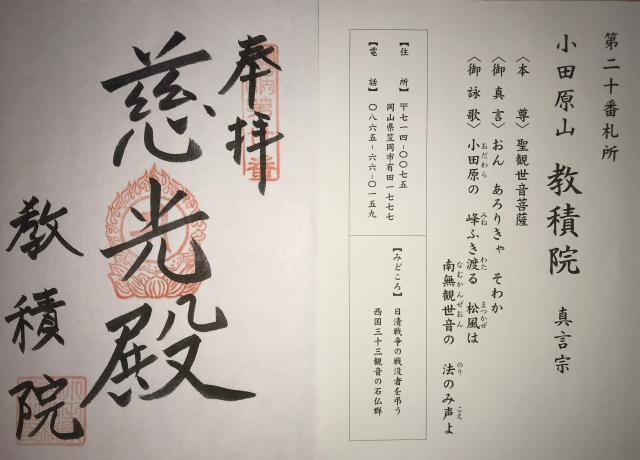 第二十番札所
小田原山 教積院 真言宗
〈本尊〉聖観世音菩薩
〈御真言〉おん あろりきゃ そわか
〈御詠歌〉小田原の 峰ふき渡る 松風は
おだわら みね わた まつかぜ
南無観世音の 法のみ声よ
なむかんぜおん のり こえ
【住所】〒七一四-〇〇七五
岡山県笠岡市有田一七七七
【電話】〇八六五-六六-〇一五九
【みどころ】日清戦争の戦没者を弔う
西国三十三観音の石仏群
奉拝
慈光殿
教積院